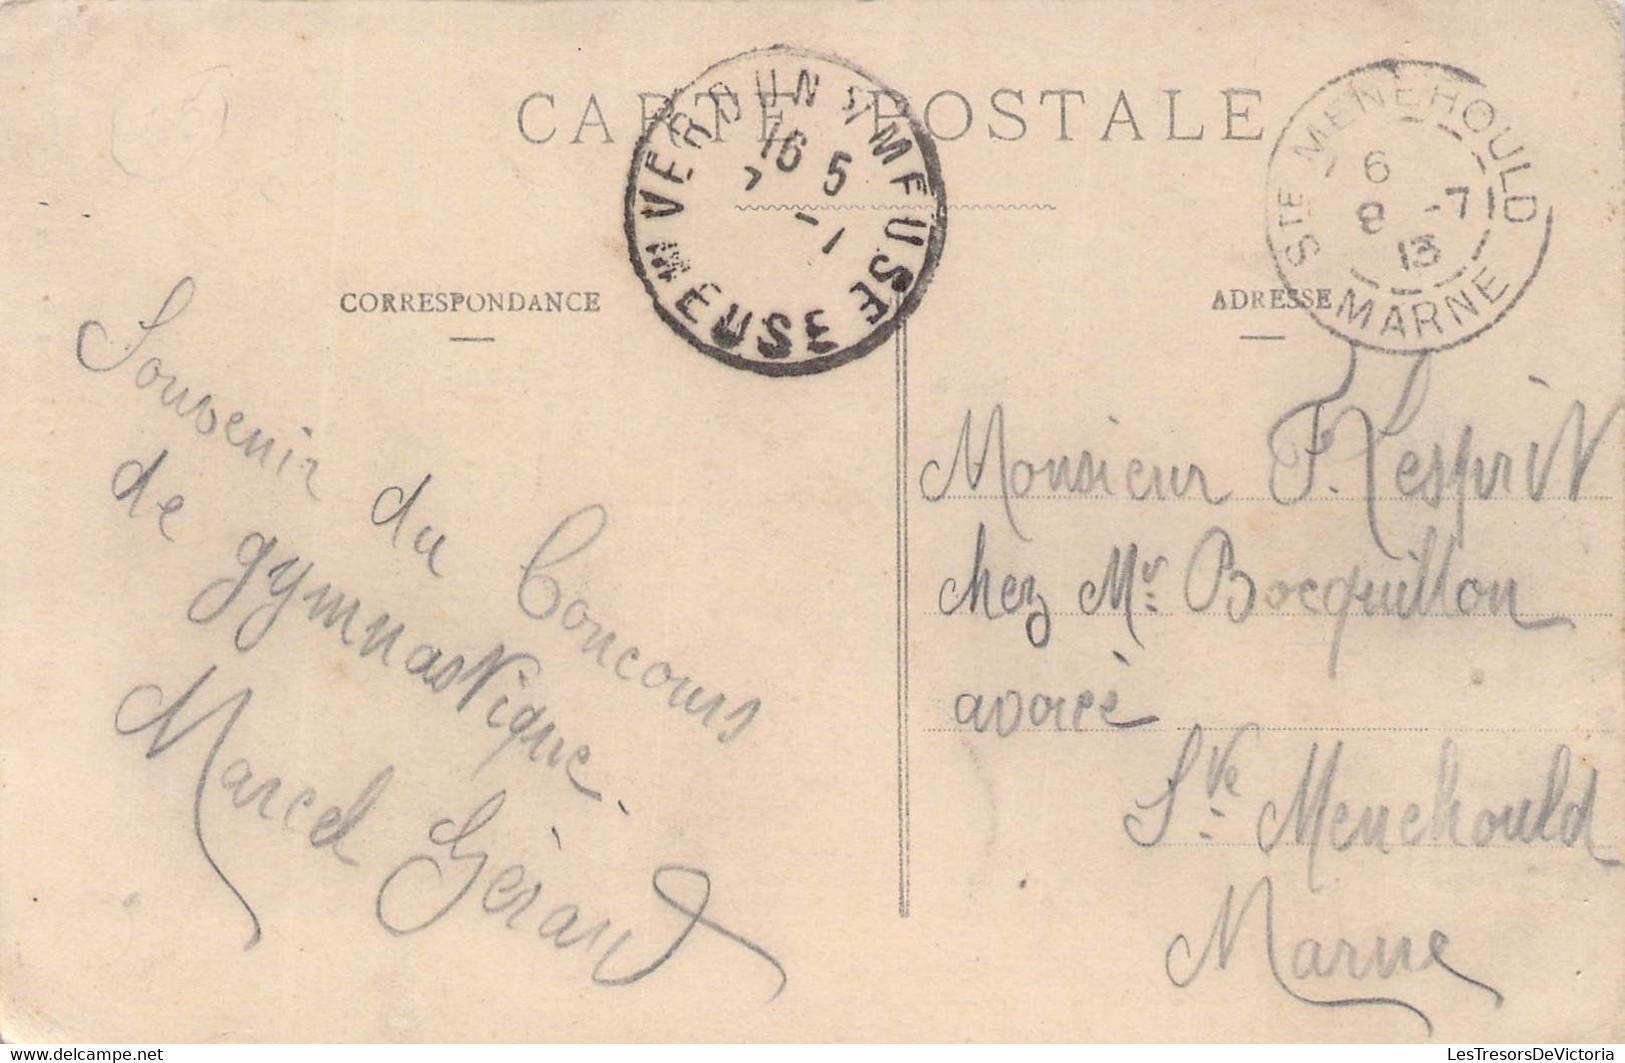 CARTE POSTALE
VERDUN S/MEUSE
MEUSE
16 5
STE MENEHOULD
6
8 -7
13
MARNE
CORRESPONDANCE
ADRESSE
Souvenir du Concours
de gymnastique.
Marcel Gérard
Monsieur F. Lesprit
chez Mr. Bocquillon
avoué
Ste. Menehould
Marne
www.delcampe.net
LesTresorsDeVictoria